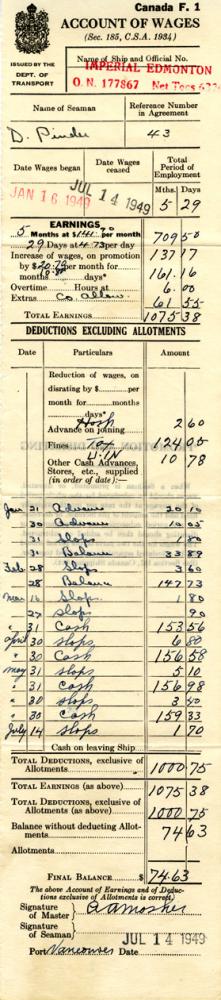 Canada F. 1
ACCOUNT OF WAGES
(Sec. 185, C.S.A. 1934)
ISSUED BY THE
DEPT. OF
TRANSPORT
Name of Ship and Official No.
IMPERIAL EDMONTON
O. N. 177867 Net Tons
Name of Seaman
Reference Number
in Agreement
D. Pinder
43
Date Wages began
Date Wages
ceased
Total
Period of
Employment
JAN 16 1949
JUL 14 1949
Mths. Days
5 29
EARNINGS
5 Months at $ per month 709 50
29 Days at 4.73 per day 137 17
Increase of wages, on promotion
by $ per month for
months days" 161.16
Overtime Hours at 6.00
Extras Co. Allow. 61 55
TOTAL EARNINGS 1075 38
DEDUCTIONS EXCLUDING ALLOTMENTS
Date Particulars Amount
Reduction of wages, on
disrating by $ per
month for months
days"
Hosp 2 60
Advance on joining
Fines Tax 124 05
U.I.N 10 78
Other Cash Advances,
Stores, etc., supplied
(in order of date):—
Jan 21 Advance 20 10
30 Advance 10 05
31 Slops 1 80
31 Balance 33 89
Feb 28 Slops 3 60
28 Balance 147 73
Mar 16 Slops. 1 80
27 Slops 90
" 31 Cash 153 56
April 30 Slops 6 80
" 30 Cash 156 58
May 31 Slops 5 10
" 31 Cash 156 98
" 30 Slops 3 40
" 30 Cash 159 33
July 14 Slops 1 70
Cash on leaving Ship
TOTAL DEDUCTIONS, exclusive of
Allotments 1000 75
TOTAL EARNINGS (as above) 1075 38
TOTAL DEDUCTIONS, exclusive of
Allotments (as above) 1000 75
Balance without deducting Allot-
ments 74 63
Allotments
FINAL BALANCE $ 74.63
The above Account of Earnings and of Deduc-
tions exclusive of Allotments is correct.
Signature
of Master
Signature
of Seaman
JUL 14 1949
Port Vancouver Date